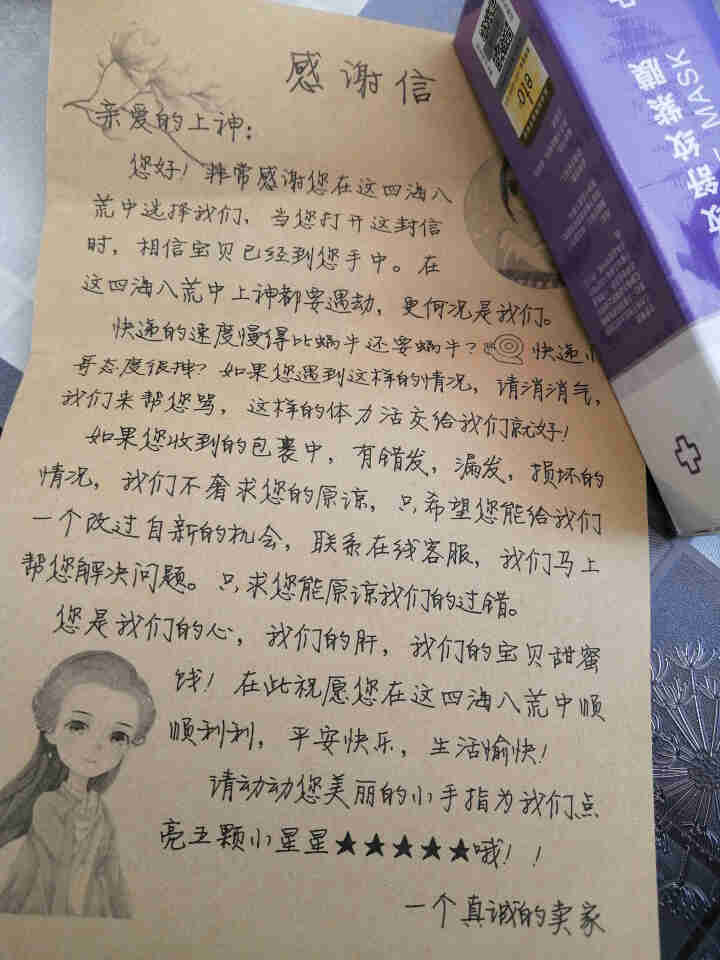 感谢信
亲爱的上神：
您好！非常感谢您在这四海八
荒中选择我们、当您打开这封信
时，相信宝贝已经到您手中。在
这四海八荒中上神都要遇劫，更何况是我们。
快递的速度慢得比蜗牛还要蜗牛？快递小
哥态度很拽？如果您遇到这样的情况，请消消气，
我们来帮您骂，这样的体力活交给我们就好！
如果您收到的包裹中，有错发，漏发，损坏的
情况，我们不奢求您的原谅，只希望您能给我们
一个改过自新的机会，联系在线客服，我们马上
帮您解决问题。只求您能原谅我们的过错。
您是我们的心，我们的肝，我们的宝贝甜蜜
饯！在此祝愿您在这四海八荒中顺
顺利利，平安快乐，生活愉快！
请动动您美丽的小手指为我们点
亮五颗小星星★★★★★哦！！
一个真诚的卖家
舒纹紫膜
MASK